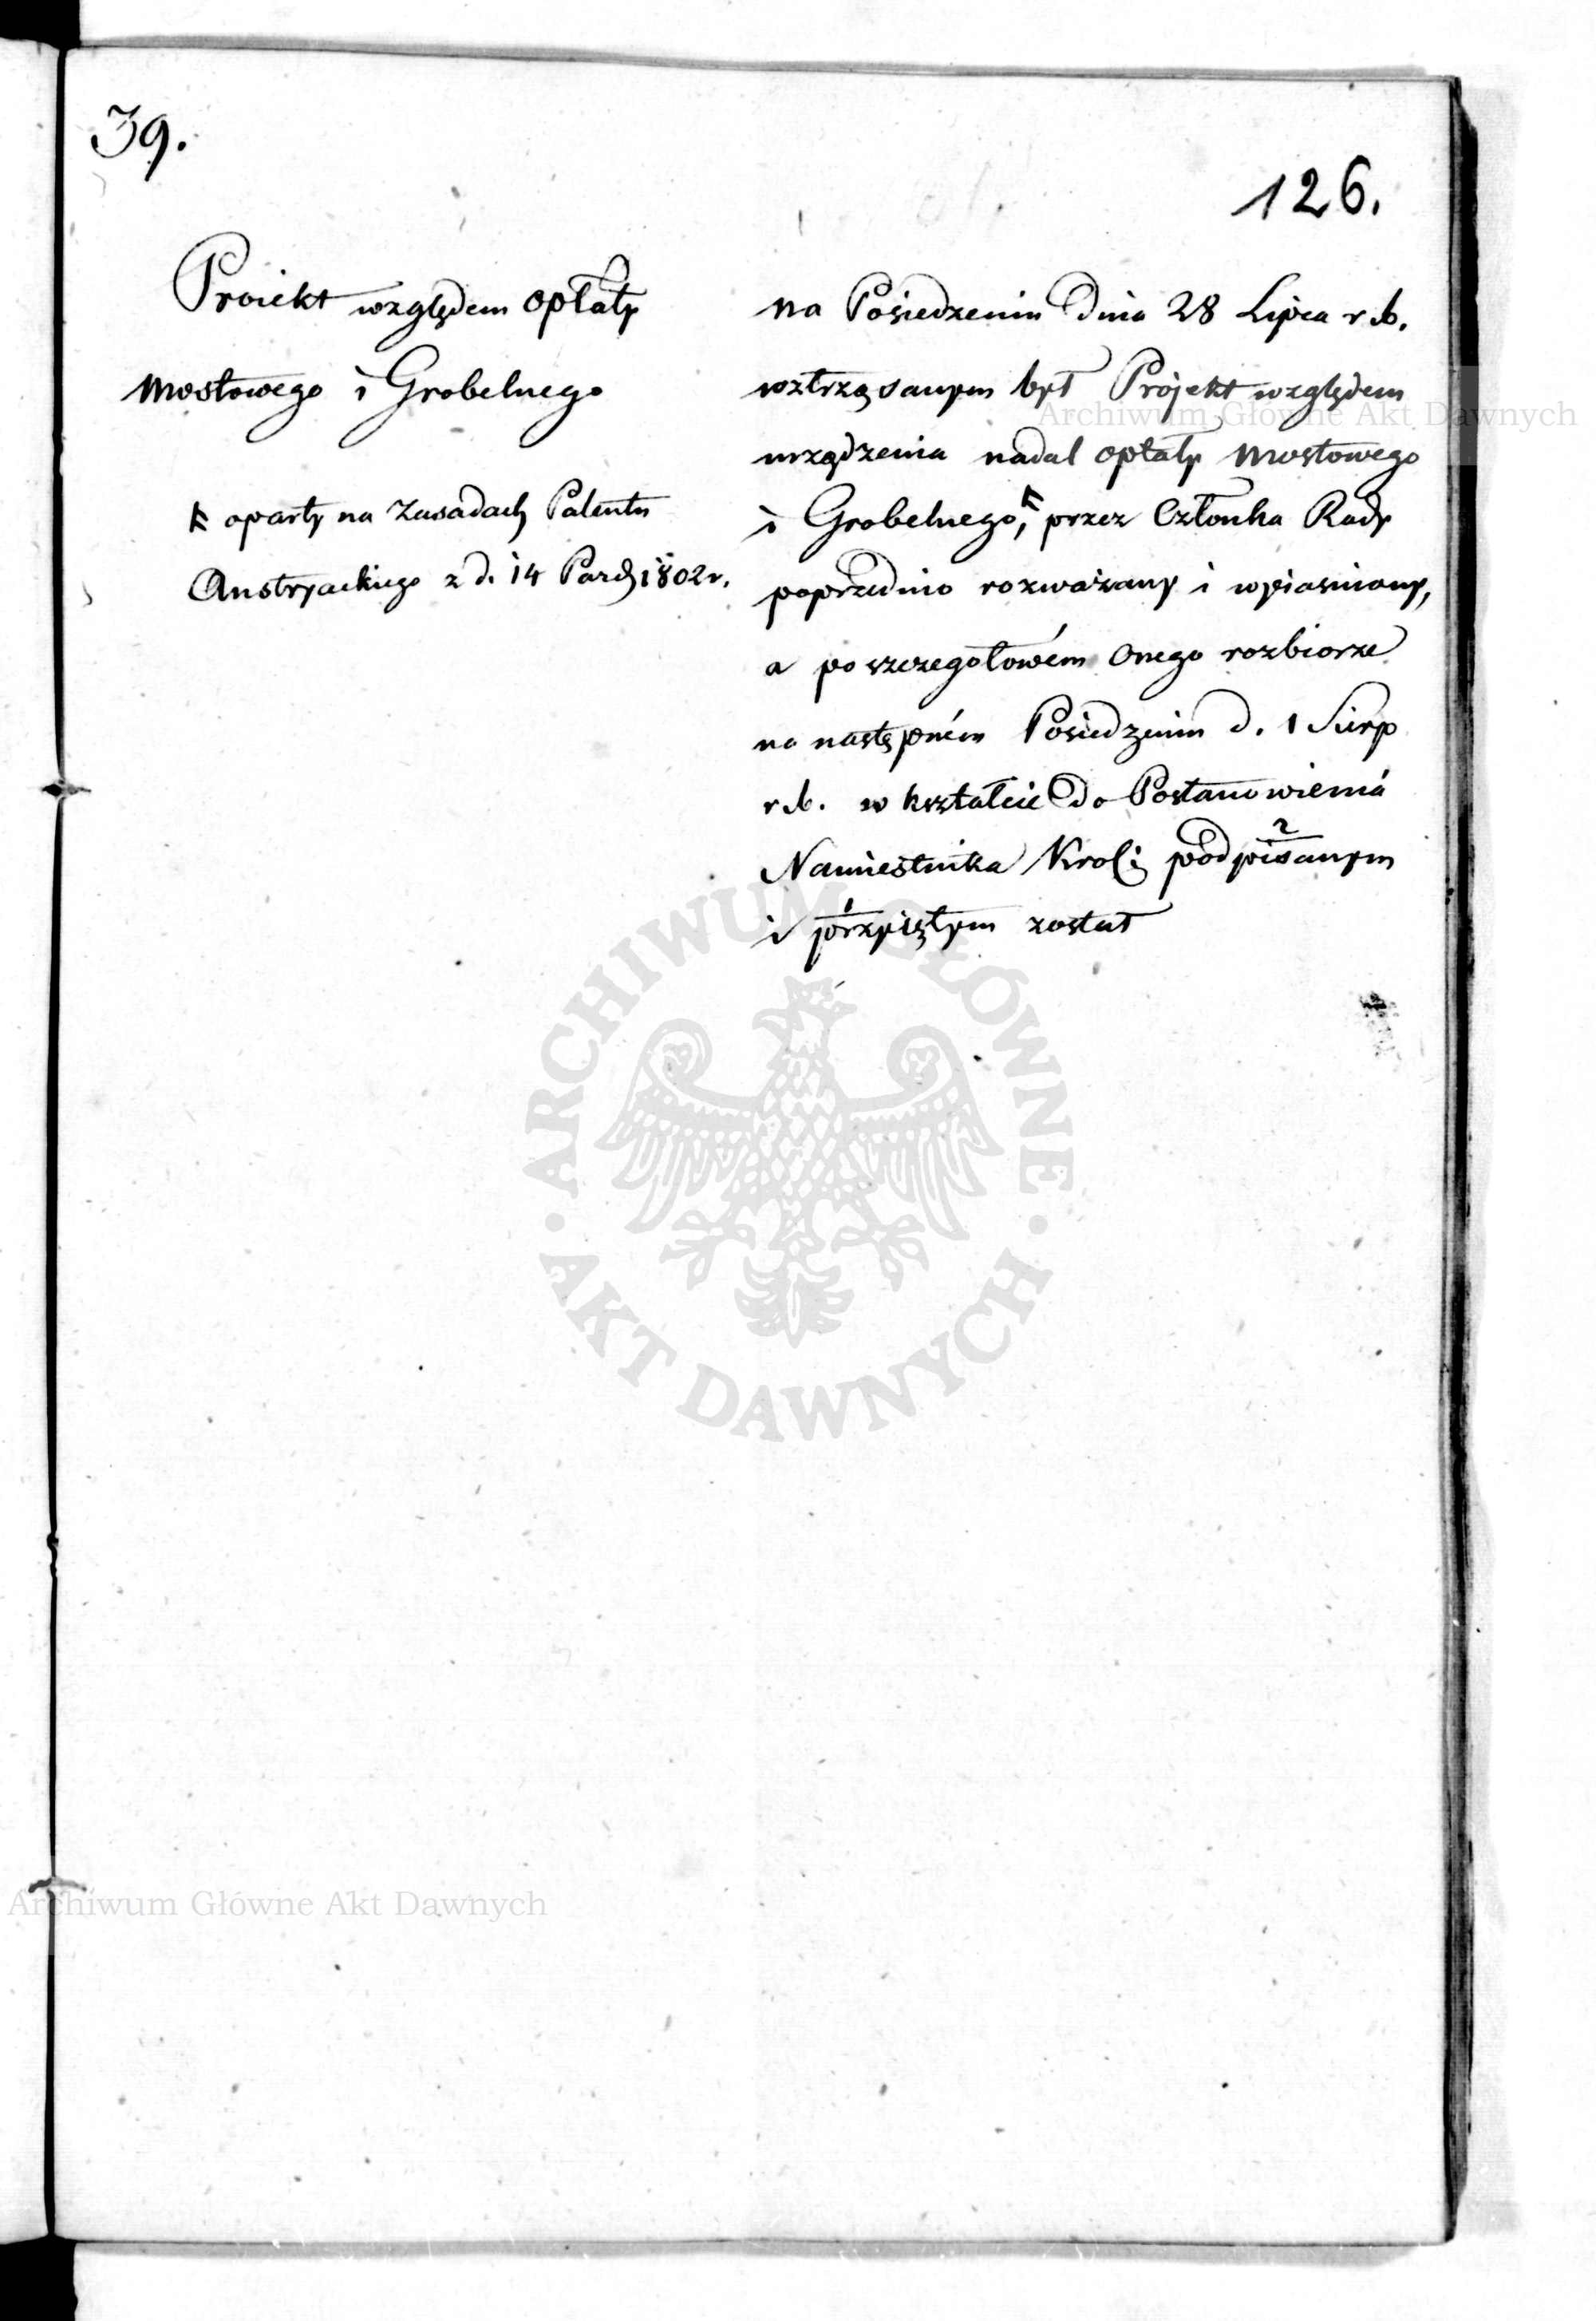 39.
126.
Proiekt względem opłaty
Mostowego i Grobelnego
oparty na Zasadach Patentu
Austryackiego z d. 14 Paźdz 1802 r.
na Posiedzeniu Dnia 28 Lipca r. b.
roztrząsanym był Projekt względem
urządzenia nadal opłaty Mostowego
i Grobelnego, przez Członka Rady
poprzednio rozważany i wyiasniony,
a po szczegołowém onego rozbiorze
na następném Posiedzeniu d. 1 Sierp
r. b. w kształcie do Postanowienia
Namiestnika Krol: podpisanym
i przyiętym został
Archiwum Główne Akt Dawnych
ARCHIWUM GŁÓWNE · AKT DAWNYCH ·
Archiwum Główne Akt Dawnych